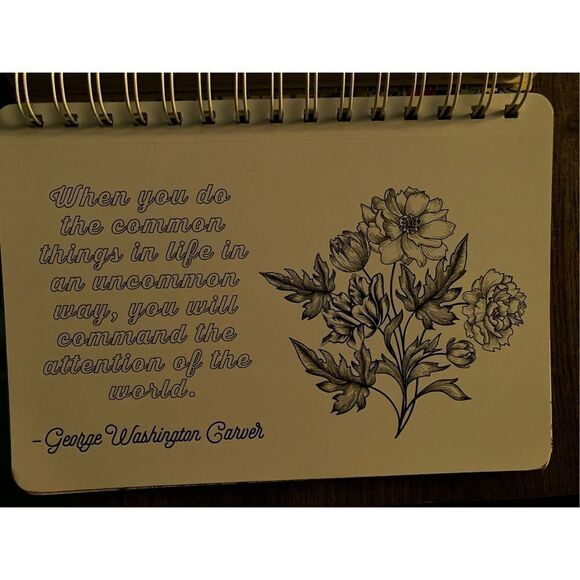 When you do
the common
things in life in
an uncommon
way, you will
command the
attention of the
world.
-George Washington Carver